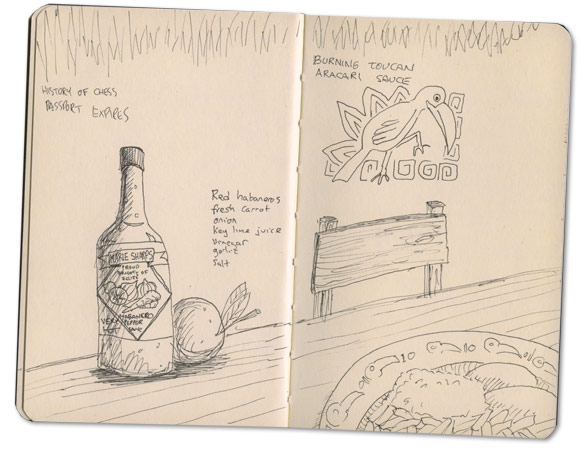 HISTORY OF CHESS
PASSPORT EXPIRES
Red habaneros
fresh carrot
onion
key lime juice
vinegar
garlic
salt
MARIE SHARPS
PROUD
PRODUCT OF
BELIZE
VERY HABANERO
HOT PEPPER
SAUCE
BURNING TOUCAN
ARACARI SAUCE